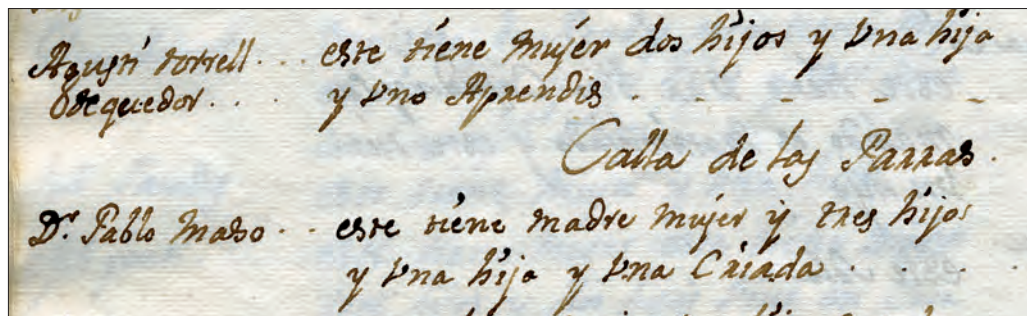 Agustí torrell . . . este tiene mujer dos hijos y vna hija
Odequedor . . . . y vno Aprendis . - - - - -
Calla de las Parras .
Dr. Pablo Maso . . . este tiene madre mujer y tres hijos
y vna hija y vna Criada . . . .